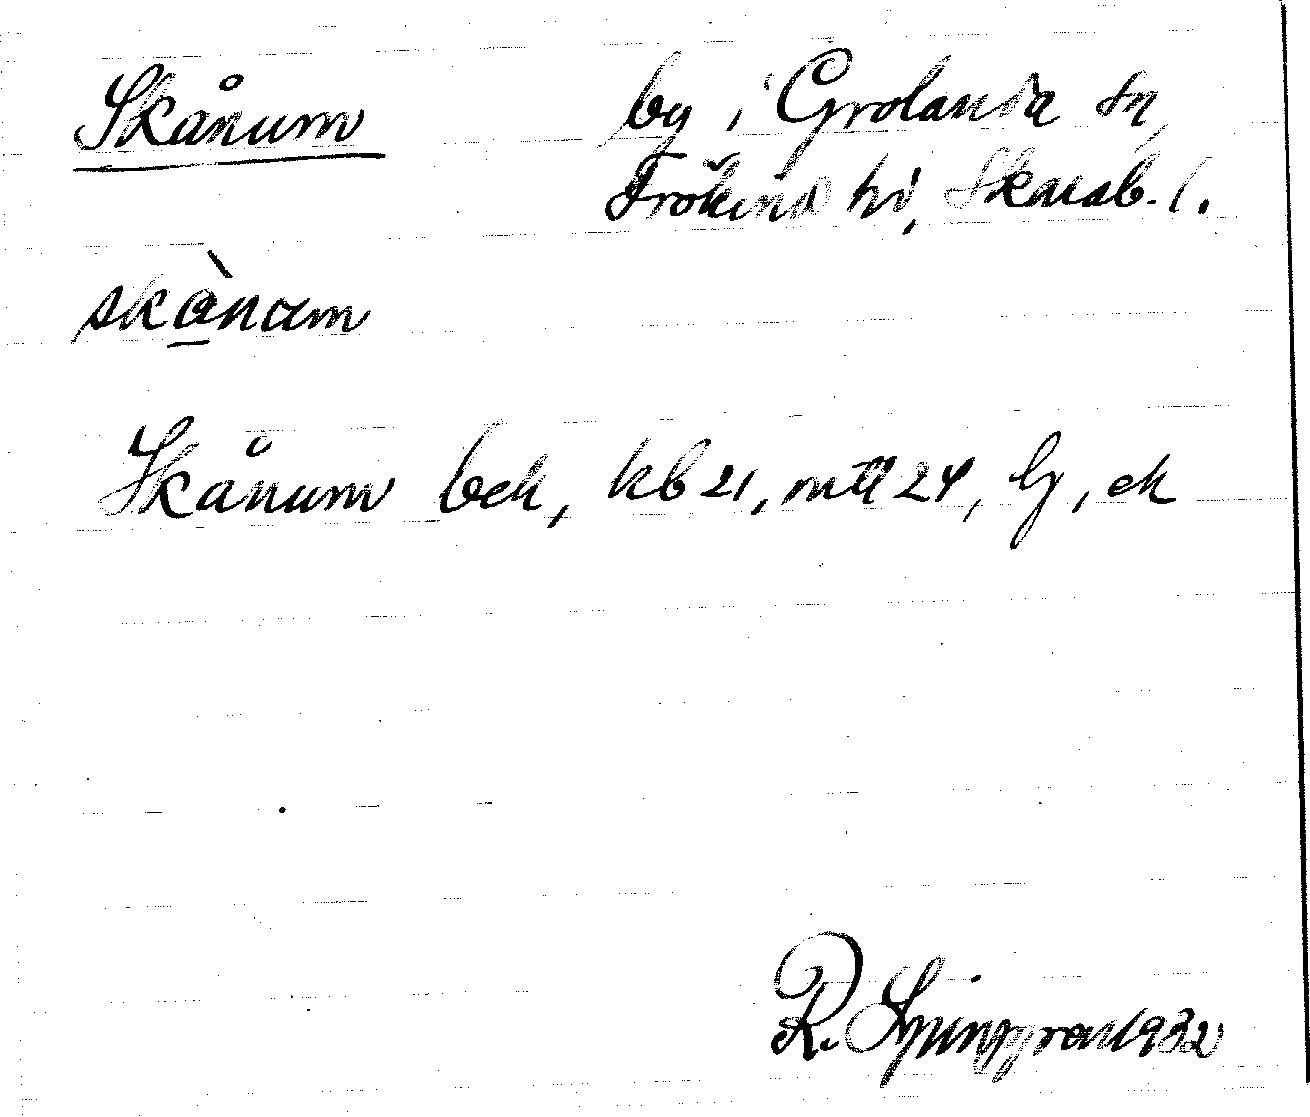 Skånum
by i Grolanda sn,
Frökind hd, Skarab. l.
skànam
Skånum bek, kb 21, mtl 24, lj, ek
R. Ljunggren 1932